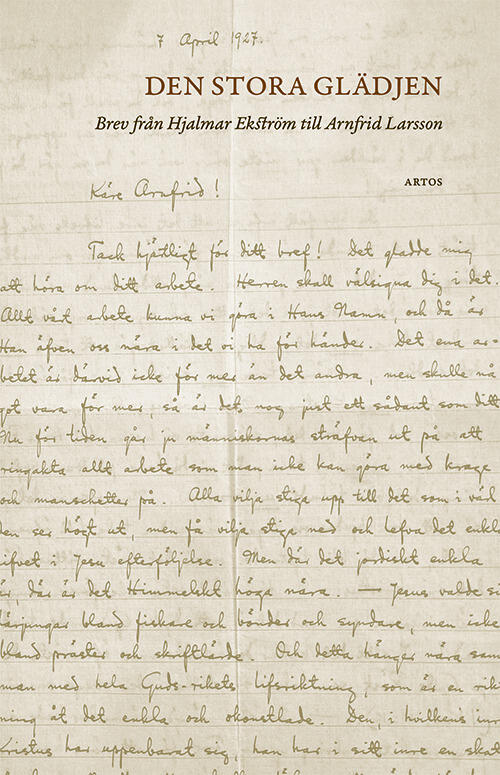 7 April 1927.
DEN STORA GLÄDJEN
Brev från Hjalmar Ekström till Arnfrid Larsson
ARTOS
Käre Arnfrid!
Tack hjätligt för ditt bref! Det gladde mig
att höra om ditt arbete. Herren skall välsigna dig i det.
Allt vårt arbete kunna vi göra i Hans Namn, och då är
Han äfven oss nära i det vi ha för händer. Det ena ar-
betet är därvid icke för mer än det andra, men skulle nå
got vara för mer, så är det nog just ett sådant som ditt
Nu för tiden går ju människornas sträfvan ut på att
ringakta allt arbete som man icke kan göra med krage
och manschetter på. Alla vilja stiga upp till det som i värl
den ser högt ut, men få vilja stiga ned och lefva det enkla
lifvet i Jesu efterföljelse. Men där det jordiskt enkla
är, där är det Himmelskt höga nära. — Jesus valde si
lärjungar bland fiskare och bönder och syndare, men icke
bland präster och skriftlärde. Och detta hänger nära sam
man med hela Guds-rikets lifsriktning, som är en rikt
ning åt det enkla och okonstlade. Den, i hvilkens inre
Kristus har uppenbarat sig, han har i sitt inre en skat